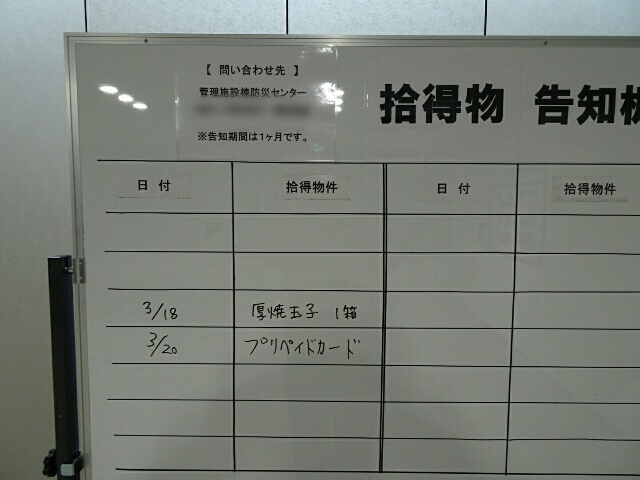 【 問い合わせ先 】
管理施設棟防災センター
※告知期間は1ヶ月です。
拾得物 告知板
日 付 拾得物件 日 付 拾得物件
3/18 厚焼玉子 1箱
3/20 プリペイドカード